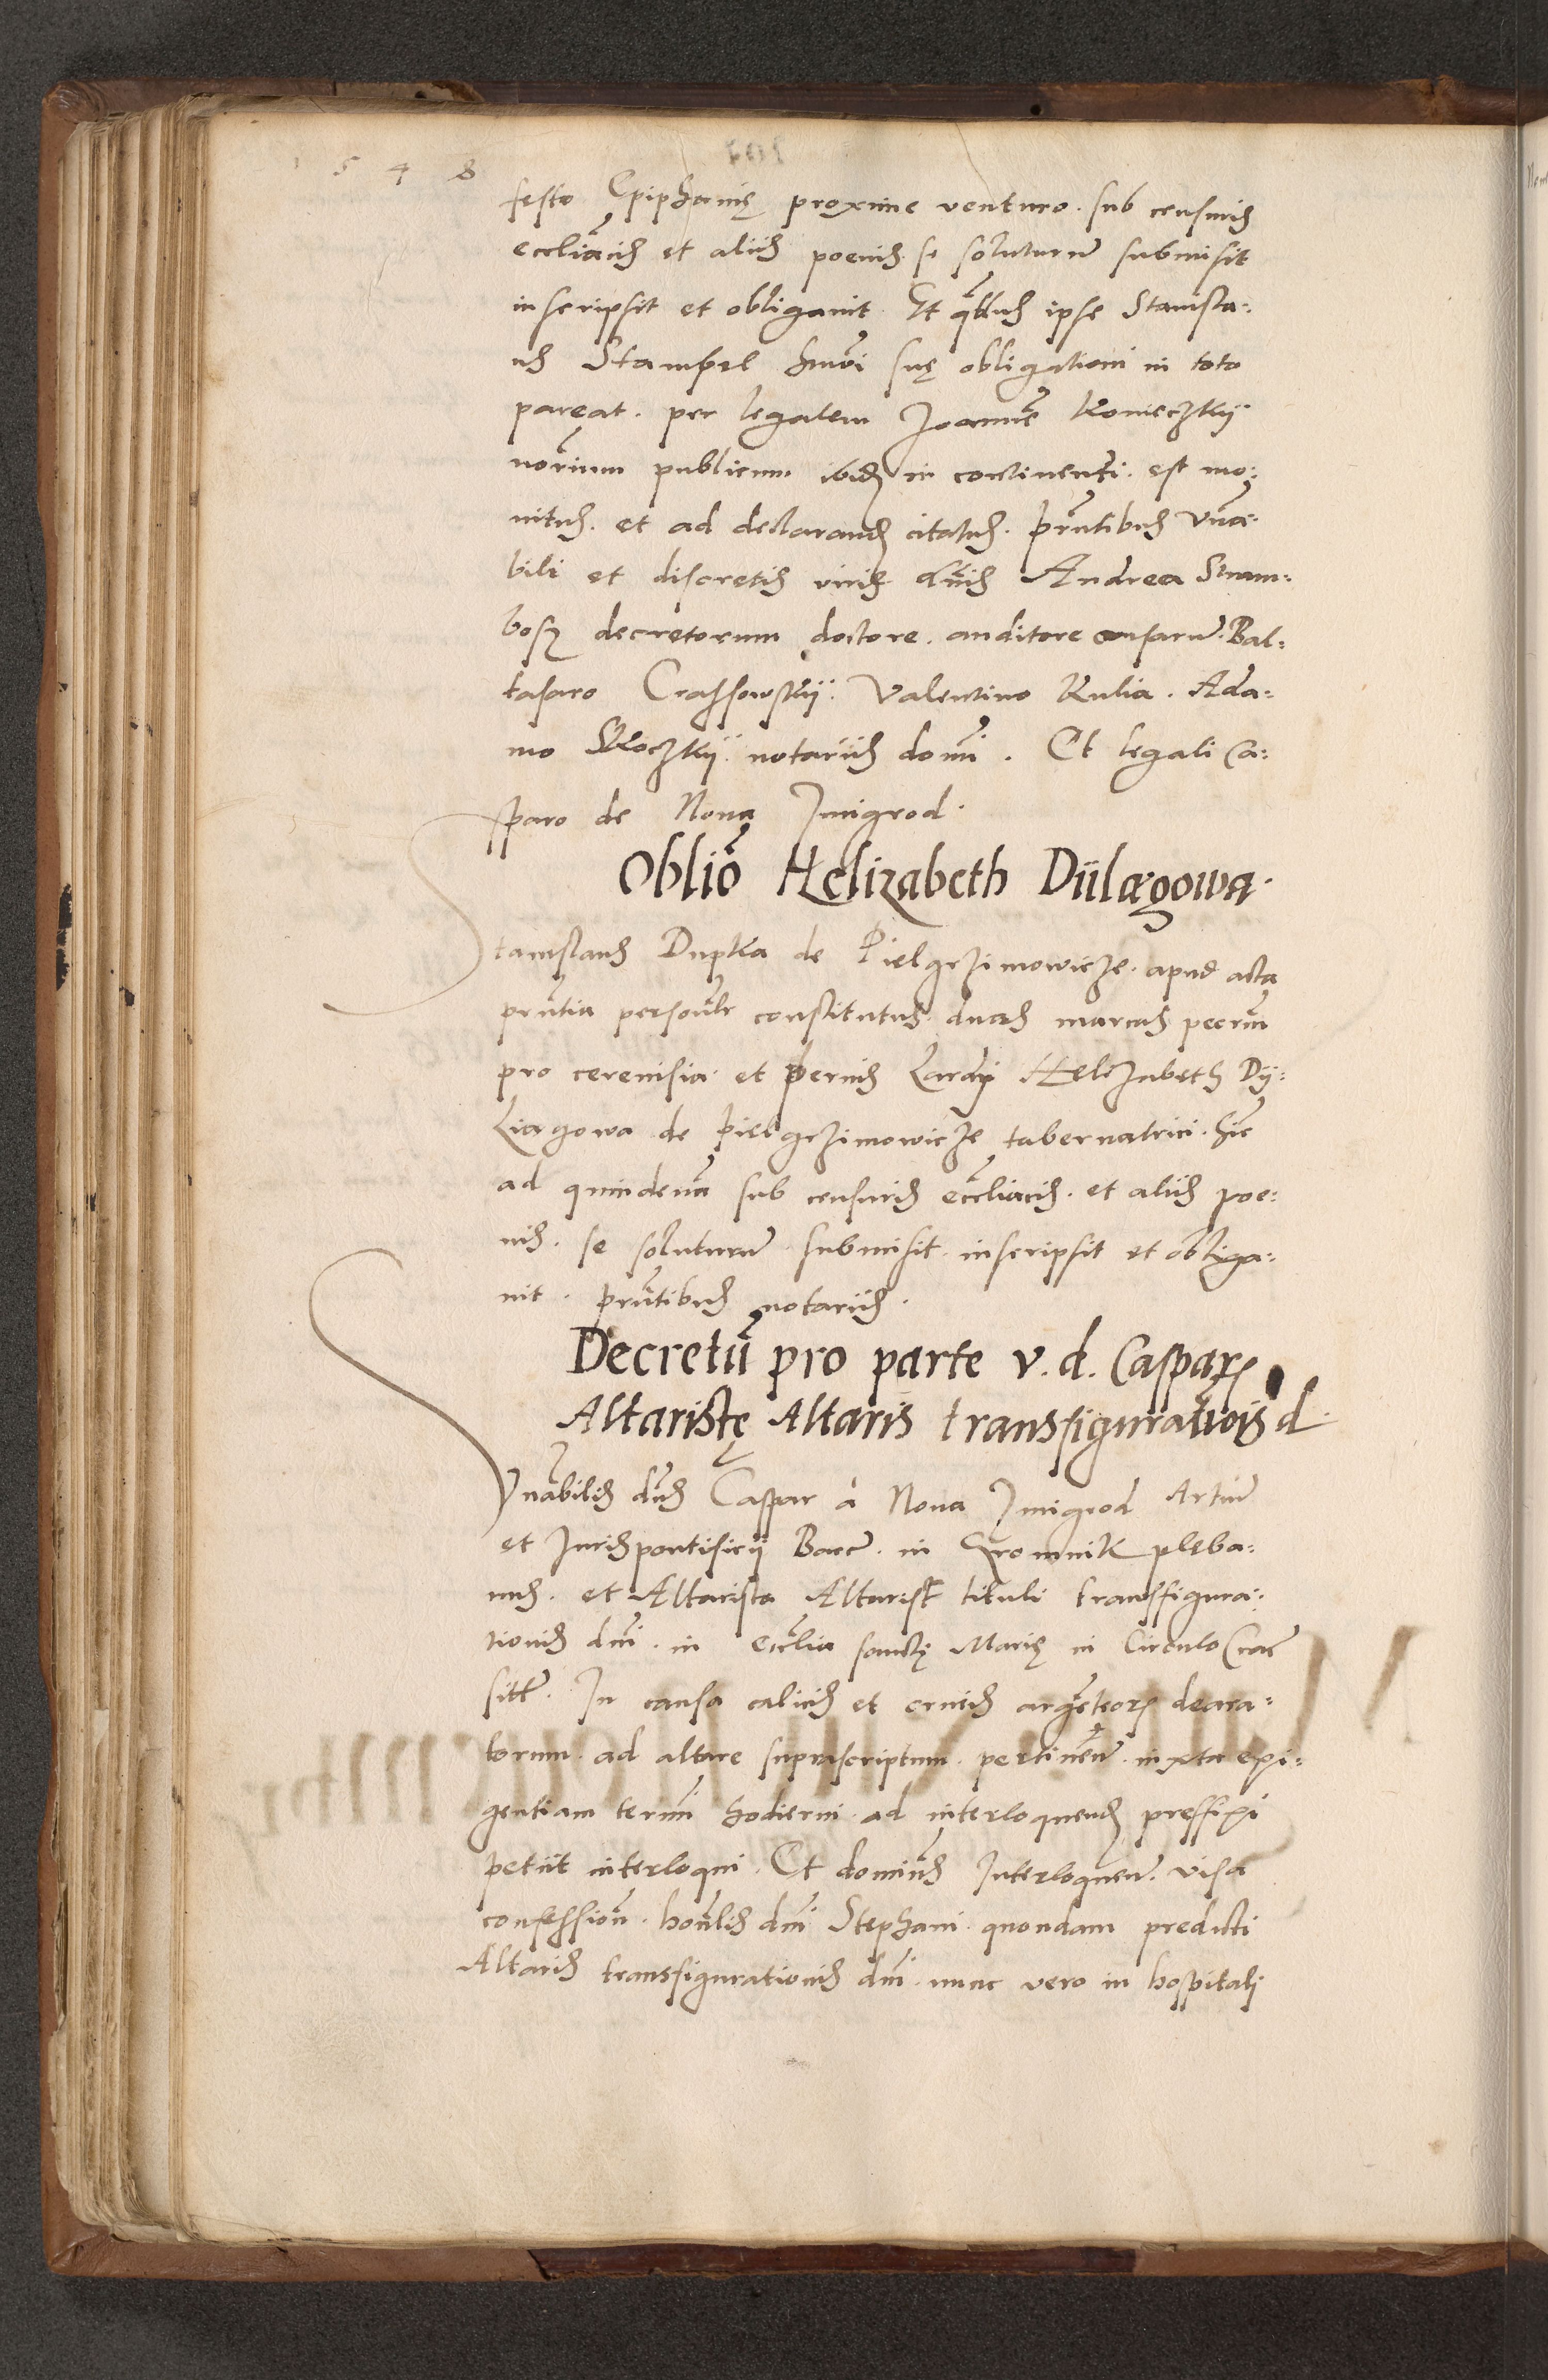 1 5 4 8
festo Epiphanię proxime venturo. sub censuris
eccliãcis et aliis poenis se soluturũ submisit
inscripsit et obligauit. Et q̃tenus ipse Stanisla:
us Stampel hmõi suę obligationi in toto
pareat. per legalem Joannẽ Konieczkÿ
norĩum publicum ibidẽ in continenti. est mo:
nitus. et ad declarandũ citatus. prñtibus Vñe:
bili et discretis viris dñis Andrea
decretorum doctore. auditore causarũ. Bal:
tasaro Crassowskÿ. Valentino Kulia. Ada:
mo Skoczkÿ notariis domi. Et legali Ca:
sparo de Noua Imigrod.
Obliõ Helizabeth Diilægowa.
Stanislaus Dupka de Pielgrzimowicze. apud acta
prñtia persoñlr constitutus. duas marcas pecuñ
pro cereuisia. et pernis Lardi Helizabeth Dÿ:
Liagowa de pielgrzimowicze tabernatrici. hic
ad quindenã sub censuris eccĩacis. et aliis poe:
nis. se soluturũ submisit. inscripsit et obliga:
uit. prñtibus notariis.
Decretũ pro parte v. d. Caspari
Altaristę Altaris transfiguratiõis d.
Vñabilis dñs Caspar à Noua Imigrod Artiũ
et Juris pontificii Bacc. in Gromnik pleba:
nus. et Altarista Altaris tituli transfigura:
tionis dñi. in Eccl̃ia sanctę Marię in Circulo Crac̃
sitĩ. In causa calicis et crucis argẽteorũ deaura:
torum. ad altare suprascriptum. pertineñ. iuxta exi:
gentiam termĩ hodierni ad interloquendũ pręfixi
petiit interloqui. Et dominus Interloqueñ. visa
confessioñ. hoñlis dñi Stephani quondam predicti
Altaris transfigurationis dñi. nunc vero in hospitali